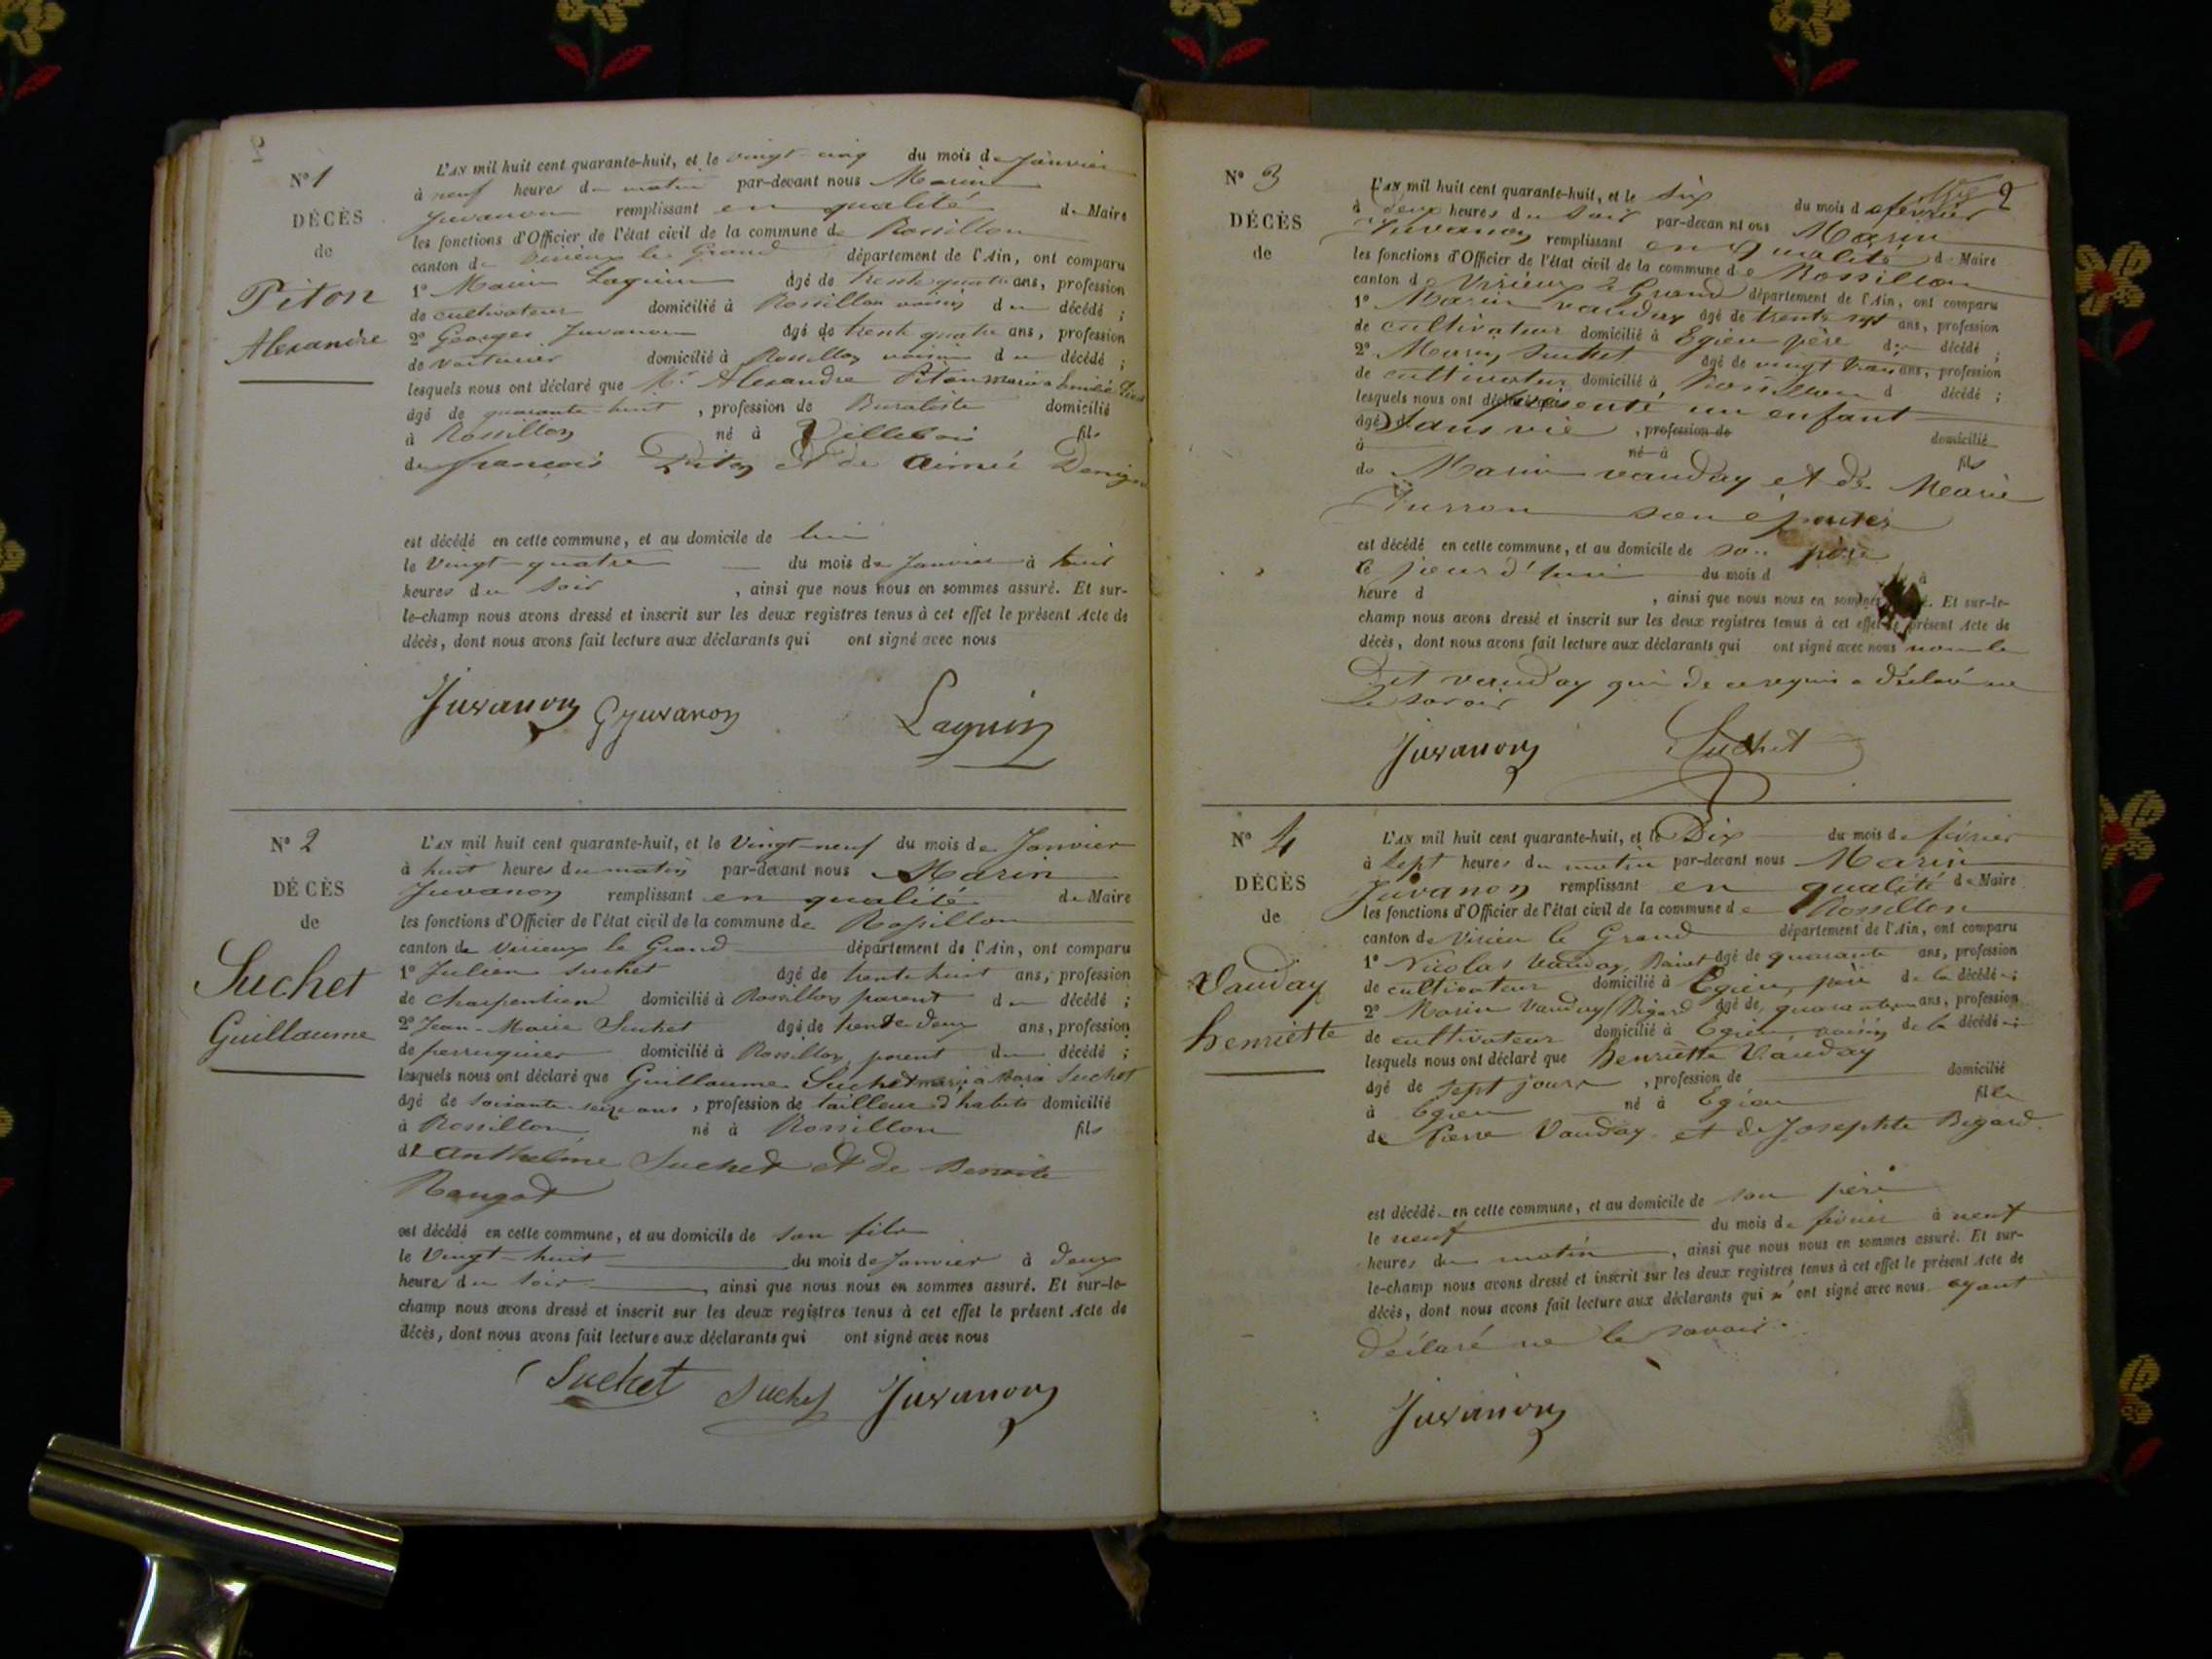 2
N° 1
DÉCÈS
de
Piton
Alexandre
L'AN mil huit cent quarante-huit, et le vingt cinq du mois de Janvier
à neuf heures du matin par-devant nous Marin
Juvanon remplissant en qualité de Maire
les fonctions d'Officier de l'état civil de la commune de Rossillon
canton de Virieux le Grand département de l'Ain, ont comparu
1° Marin Laguin âgé de trente quatre ans, profession
de cultivateur domicilié à Rossillon voisin du décédé ;
2° Georges Juvanon âgé de trente quatre ans, profession
de voiturier domicilié à Rossillon voisin du décédé ;
lesquels nous ont déclaré que Mr Alexandre Piton marié à
âgé de quarante-huit , profession de Buraliste domicilié
à Rossillon né à Villebois fils
de françois Piton et de Aimée
est décédé en cette commune, et au domicile de lui
le Vingt-quatre du mois de Janvier à huit
heures du soir , ainsi que nous nous en sommes assuré. Et sur-
le-champ nous avons dressé et inscrit sur les deux registres tenus à cet effet le présent Acte de
décès, dont nous avons fait lecture aux déclarants qui ont signé avec nous
Juvanon GJuvanon Laguin
N° 2
DÉCÈS
de
Suchet
Guillaume
L'AN mil huit cent quarante-huit, et le Vingt-neuf du mois de Janvier
à huit heures du matin par-devant nous Marin
Juvanon remplissant en qualité de Maire
les fonctions d'Officier de l'état civil de la commune de Rossillon
canton de Virieux le Grand département de l'Ain, ont comparu
1° Julien Suchet âgé de trente huit ans, profession
de Charpentier domicilié à Rossillon parent du décédé ;
2° Jean-Marie Suchet âgé de trente deux ans, profession
de perruquier domicilié à Rossillon parent du décédé ;
lesquels nous ont déclaré que Guillaume Suchet marié à Marie Suchet
âgé de soixante-seize ans , profession de tailleur d'habits domicilié
à Rossillon né à Rossillon fils
de Anthelme Suchet et de Benoite
Rangod
est décédé en cette commune, et au domicile de son fils
le Vingt-huit du mois de Janvier à deux
heures du soir , ainsi que nous nous en sommes assuré. Et sur-le-
champ nous avons dressé et inscrit sur les deux registres tenus à cet effet le présent Acte de
décès, dont nous avons fait lecture aux déclarants qui ont signé avec nous
Suchet Suchet Juvanon
2
N° 3
DÉCÈS
de
L'AN mil huit cent quarante-huit, et le six du mois de février
à deux heures du soir par-devant nous Marin
Juvanon remplissant en qualité de Maire
les fonctions d'Officier de l'état civil de la commune de Rossillon
canton de Virieux le Grand département de l'Ain, ont comparu
1° Marin vauday âgé de trente sept ans, profession
de cultivateur domicilié à Egieu père du décédé ;
2° Marin Suchet âgé de vingt trois ans, profession
de cultivateur domicilié à Rossillon d décédé ;
lesquels nous ont présenté un enfant
âgé d Sans vie , profession de domicilié
à né à fils
de Marin vauday et de Marie
Jurron son épouse
est décédé en cette commune, et au domicile de son père
le jourd'hui du mois d à
heure d , ainsi que nous nous en sommes assuré. Et sur-le-
champ nous avons dressé et inscrit sur les deux registres tenus à cet effet le présent Acte de
décès, dont nous avons fait lecture aux déclarants qui ont signé avec nous non le
dit vauday qui de ce requis a déclaré ne
le savoir
Juvanon Suchet
N° 4
DÉCÈS
de
Vauday
henriette
L'AN mil huit cent quarante-huit, et le Dix du mois de février
à sept heures du matin par-devant nous Marin
Juvanon remplissant en qualité de Maire
les fonctions d'Officier de l'état civil de la commune de Rossillon
canton de Virieu le Grand département de l'Ain, ont comparu
1° Nicolas Vauday âgé de quarante ans, profession
de cultivateur domicilié à Egieu père de la décédée ;
2° Marin Vauday Bigard âgé de ans, profession
de cultivateur domicilié à Egieu voisin de la décédée ;
lesquels nous ont déclaré que henriette Vauday
âgé de sept jours , profession de domicilié
à Egieu né à Egieu fille
de Pierre Vauday et de Josephte Bigard
est décédée en cette commune, et au domicile de son père
le neuf du mois de février à neuf
heures du matin , ainsi que nous nous en sommes assuré. Et sur-
le-champ nous avons dressé et inscrit sur les deux registres tenus à cet effet le présent Acte de
décès, dont nous avons fait lecture aux déclarants qui n'ont signé avec nous ayant
déclaré ne le savoir.
Juvanon